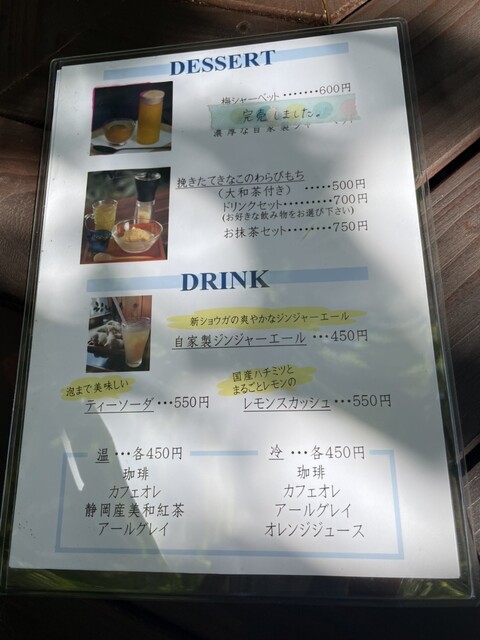 DESSERT
梅シャーベット ・・・・・・・600円
完売しました。
濃厚な自家製シャーベット
挽きたてきなこのわらびもち
(大和茶付き) ・・・・・500円
ドリンクセット・・・・・・・・・700円
(お好きな飲み物をお選び下さい)
お抹茶セット・・・・・・・・750円
DRINK
新ショウガの爽やかなジンジャーエール
自家製ジンジャーエール ・・・450円
泡まで美味しい
ティーソーダ ・・・550円
国産ハチミツと
まるごとレモンの
レモンスカッシュ ・・・550円
温 ・・・各450円
珈琲
カフェオレ
静岡産美和紅茶
アールグレイ
冷 ・・・各450円
珈琲
カフェオレ
アールグレイ
オレンジジュース